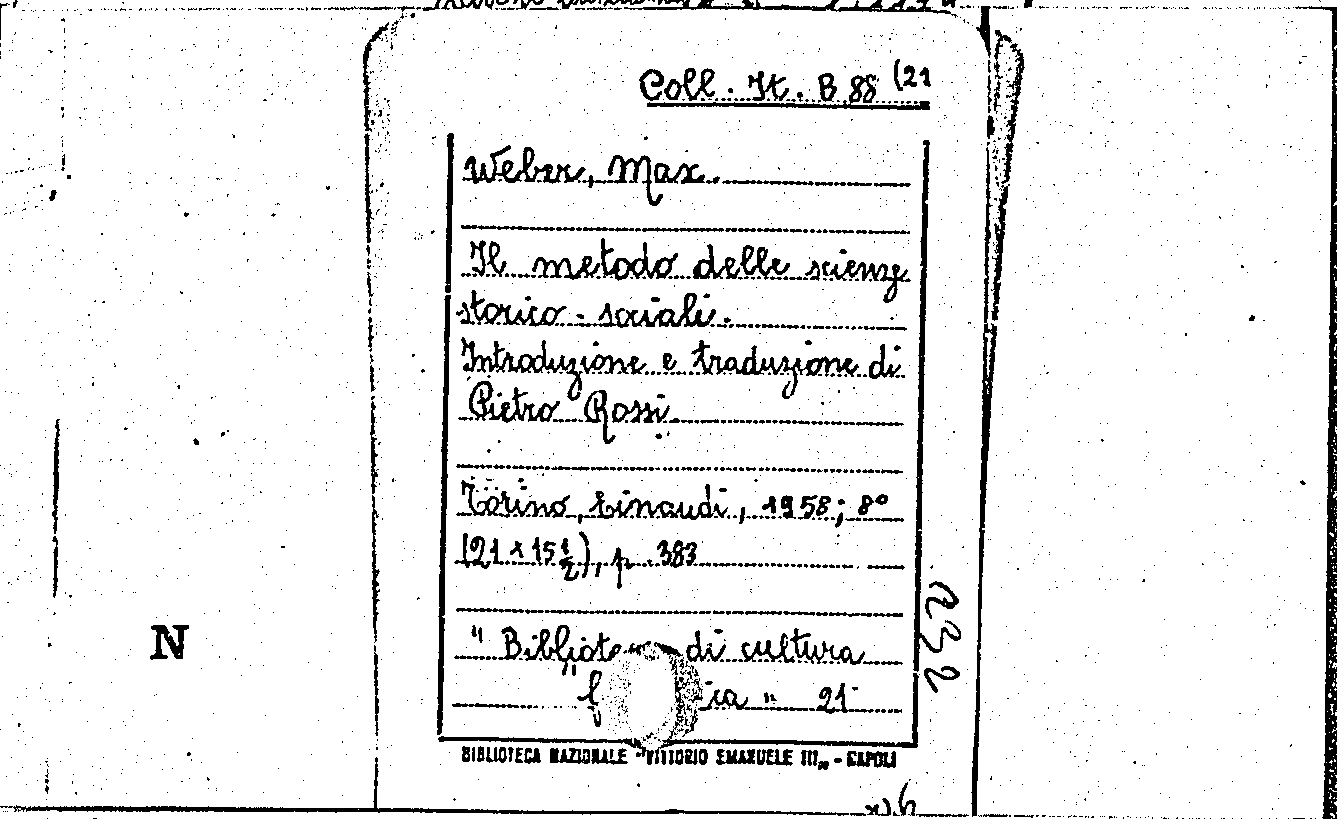 Coll. It. B 88 (21
Weber, Max.
Il metodo delle scienze
storico-sociali.
Introduzione e traduzione di
Pietro Rossi.
Torino, Einaudi, 1958; 8°
(21 x 15 1/2), p. 383
" di cultura
" 21
232
N
BIBLIOTECA NAZIONALE "VITTORIO EMANUELE III" - NAPOLI